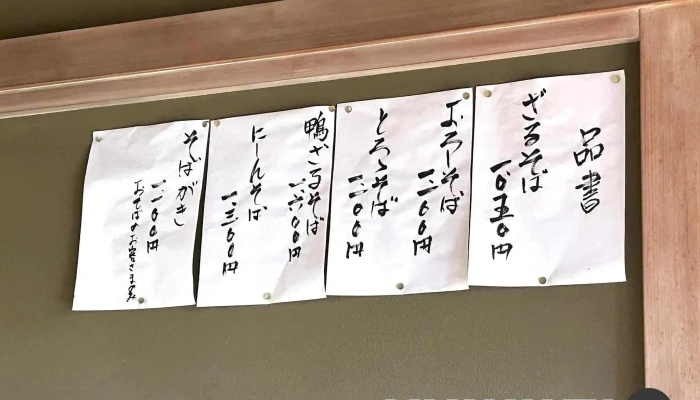 品書
ざるそば
一、〇五〇円
おろしそば
一、二〇〇円
とろゝそば
一、二〇〇円
鴨ざるそば
一、六〇〇円
にしんそば
一、三〇〇円
そばがき
一、一〇〇円
おそばのお客さまのみ